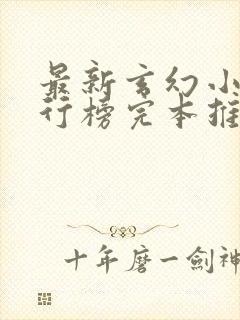 最新玄幻小
行榜完本推
十年磨一劍神